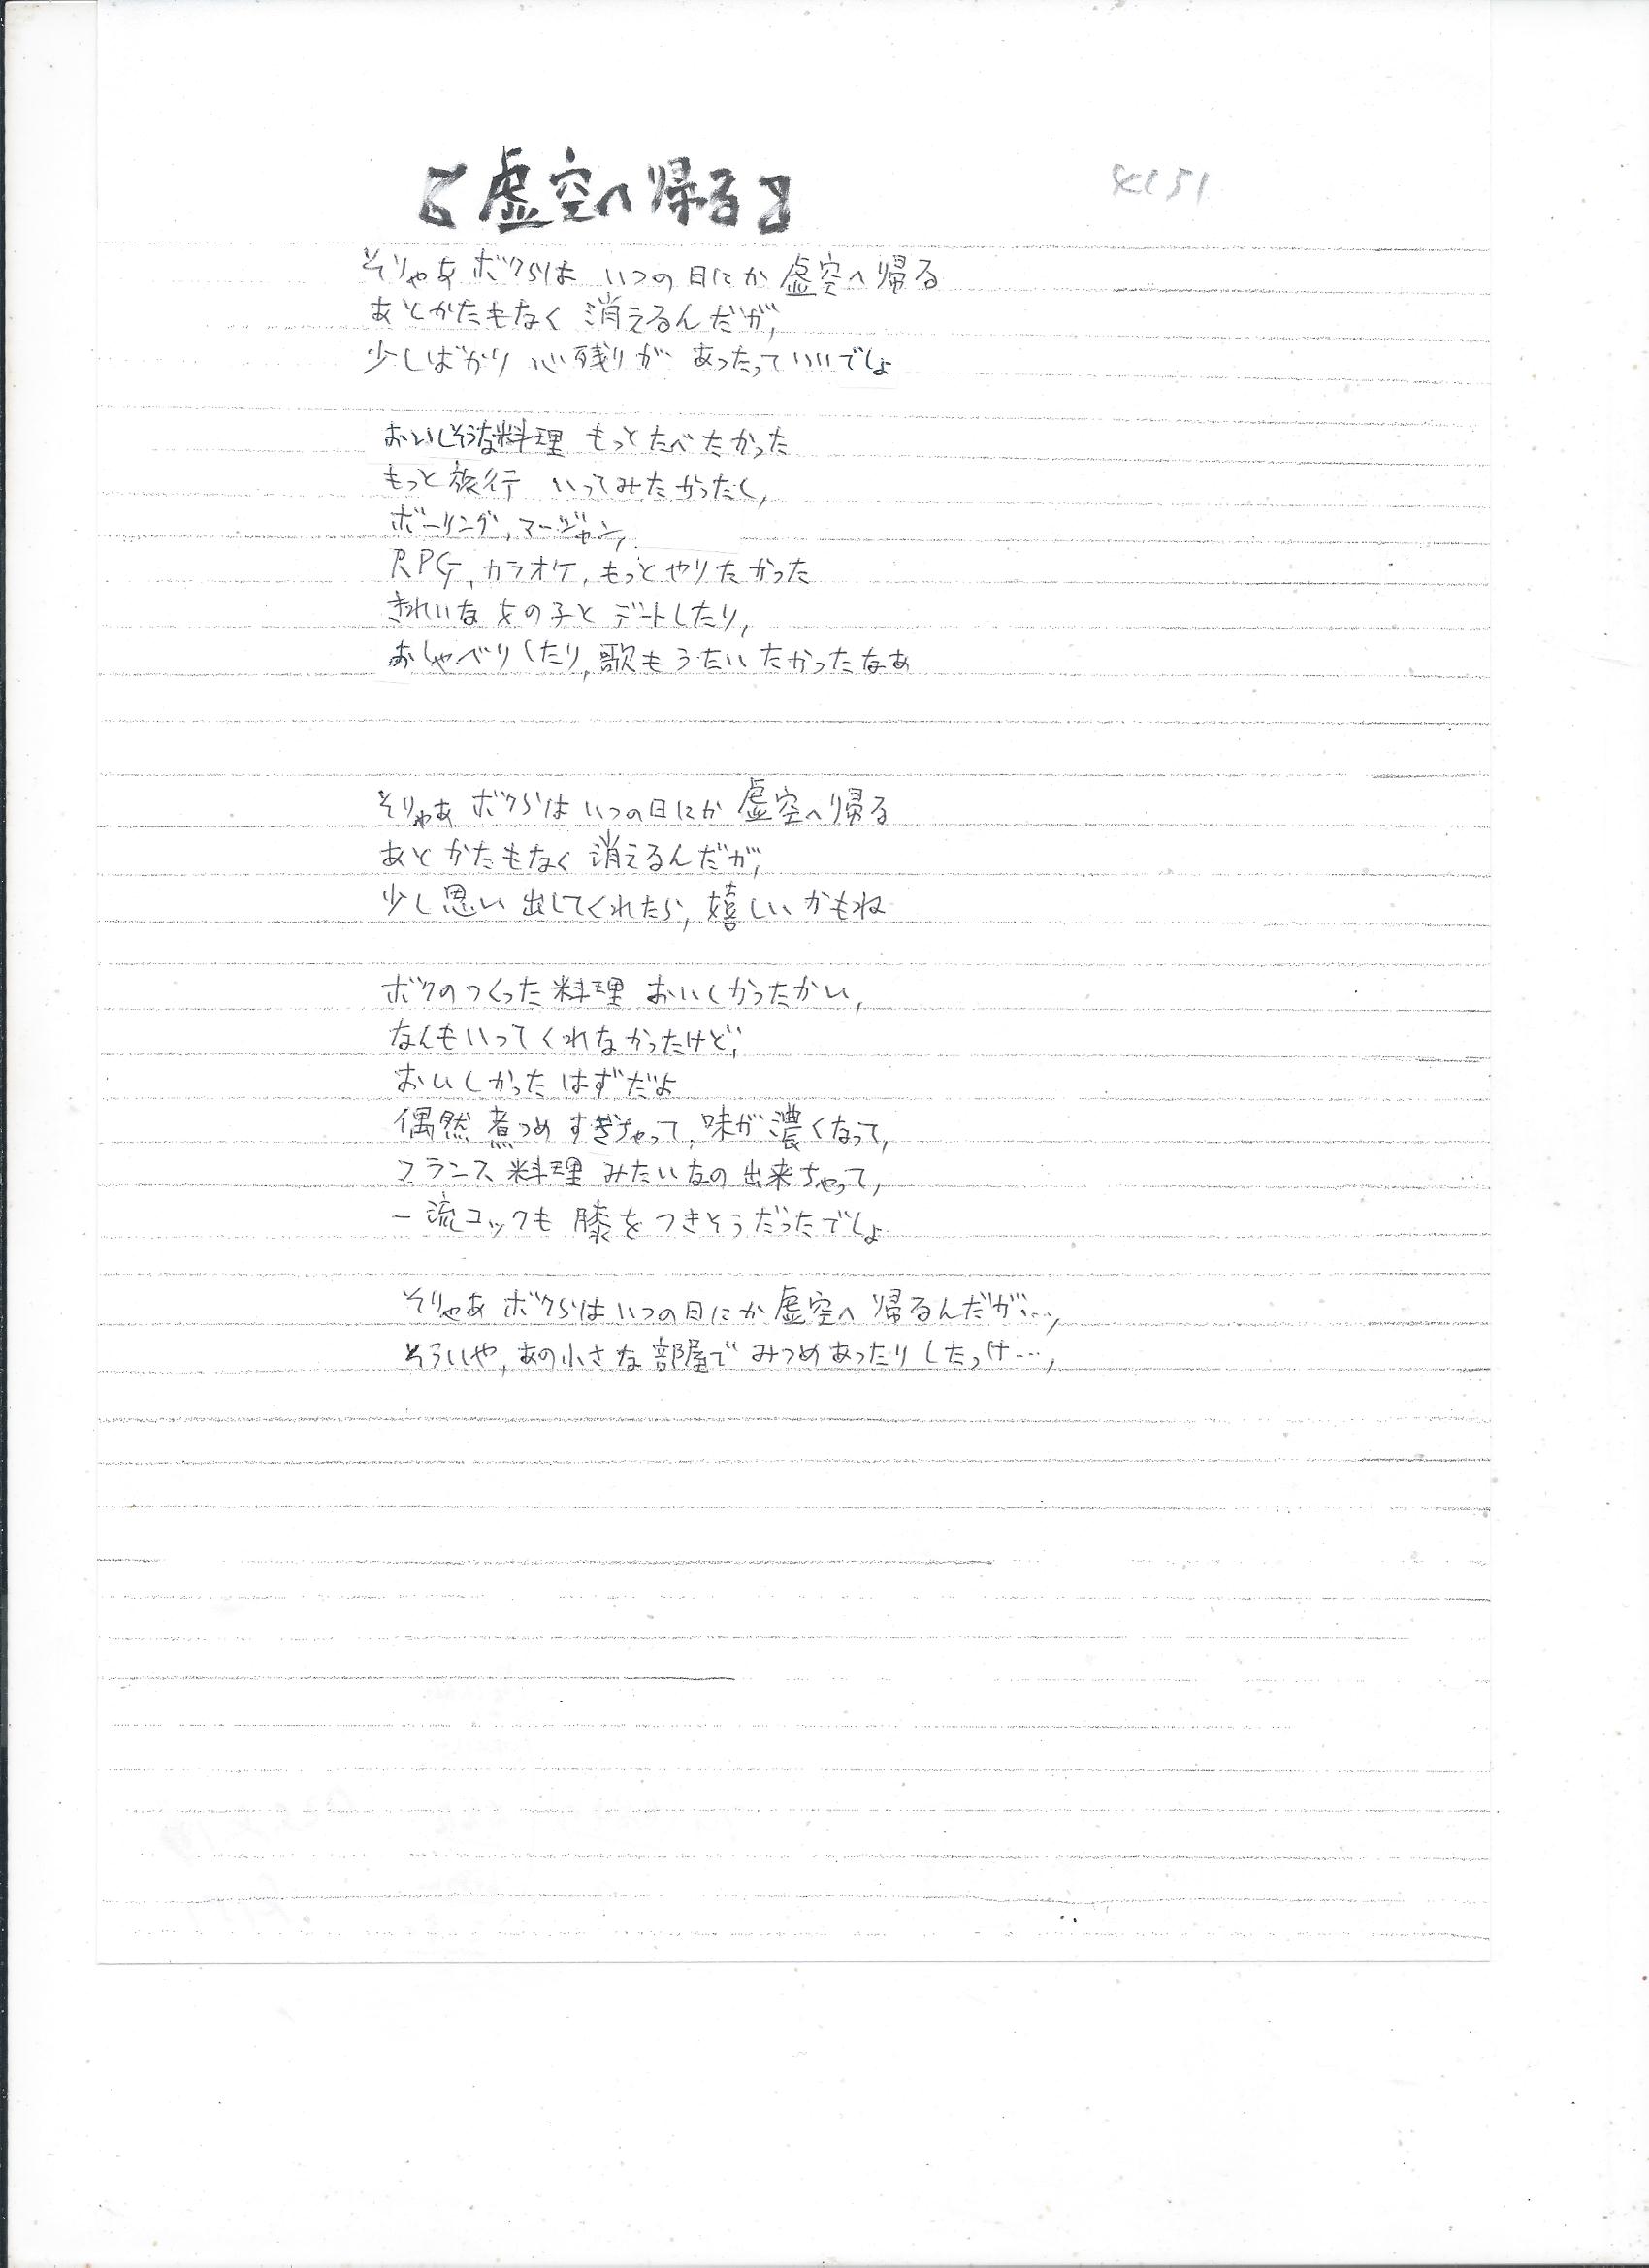 【虚空へ帰る】
そりゃあ ボクらは いつの日にか 虚空へ帰る
あとかたもなく 消えるんだが,
少しばかり 心残りが あったっていいでしょ
おいしそうな料理 もっとたべたかった
もっと旅行 いってみたかったし,
ボーリング, マージャン,
RPG, カラオケ, もっとやりたかった
きれいな女の子と デートしたり,
おしゃべりしたり, 歌もうたいたかったなあ
そりゃあ ボクらは いつの日にか 虚空へ帰る
あとかたもなく 消えるんだが,
少し思い出してくれたら, 嬉しいかもね
ボクのつくった料理 おいしかったかい,
なんもいってくれなかったけど,
おいしかったはずだよ
偶然 煮つめすぎちゃって, 味が濃くなって,
フランス料理みたいなの出来ちゃって,
一流コックも 膝をつきそうだったでしょ
そりゃあ ボクらは いつの日にか 虚空へ 帰るんだが…,
そういや, あの小さな部屋で みつめあったりしたっけ…,